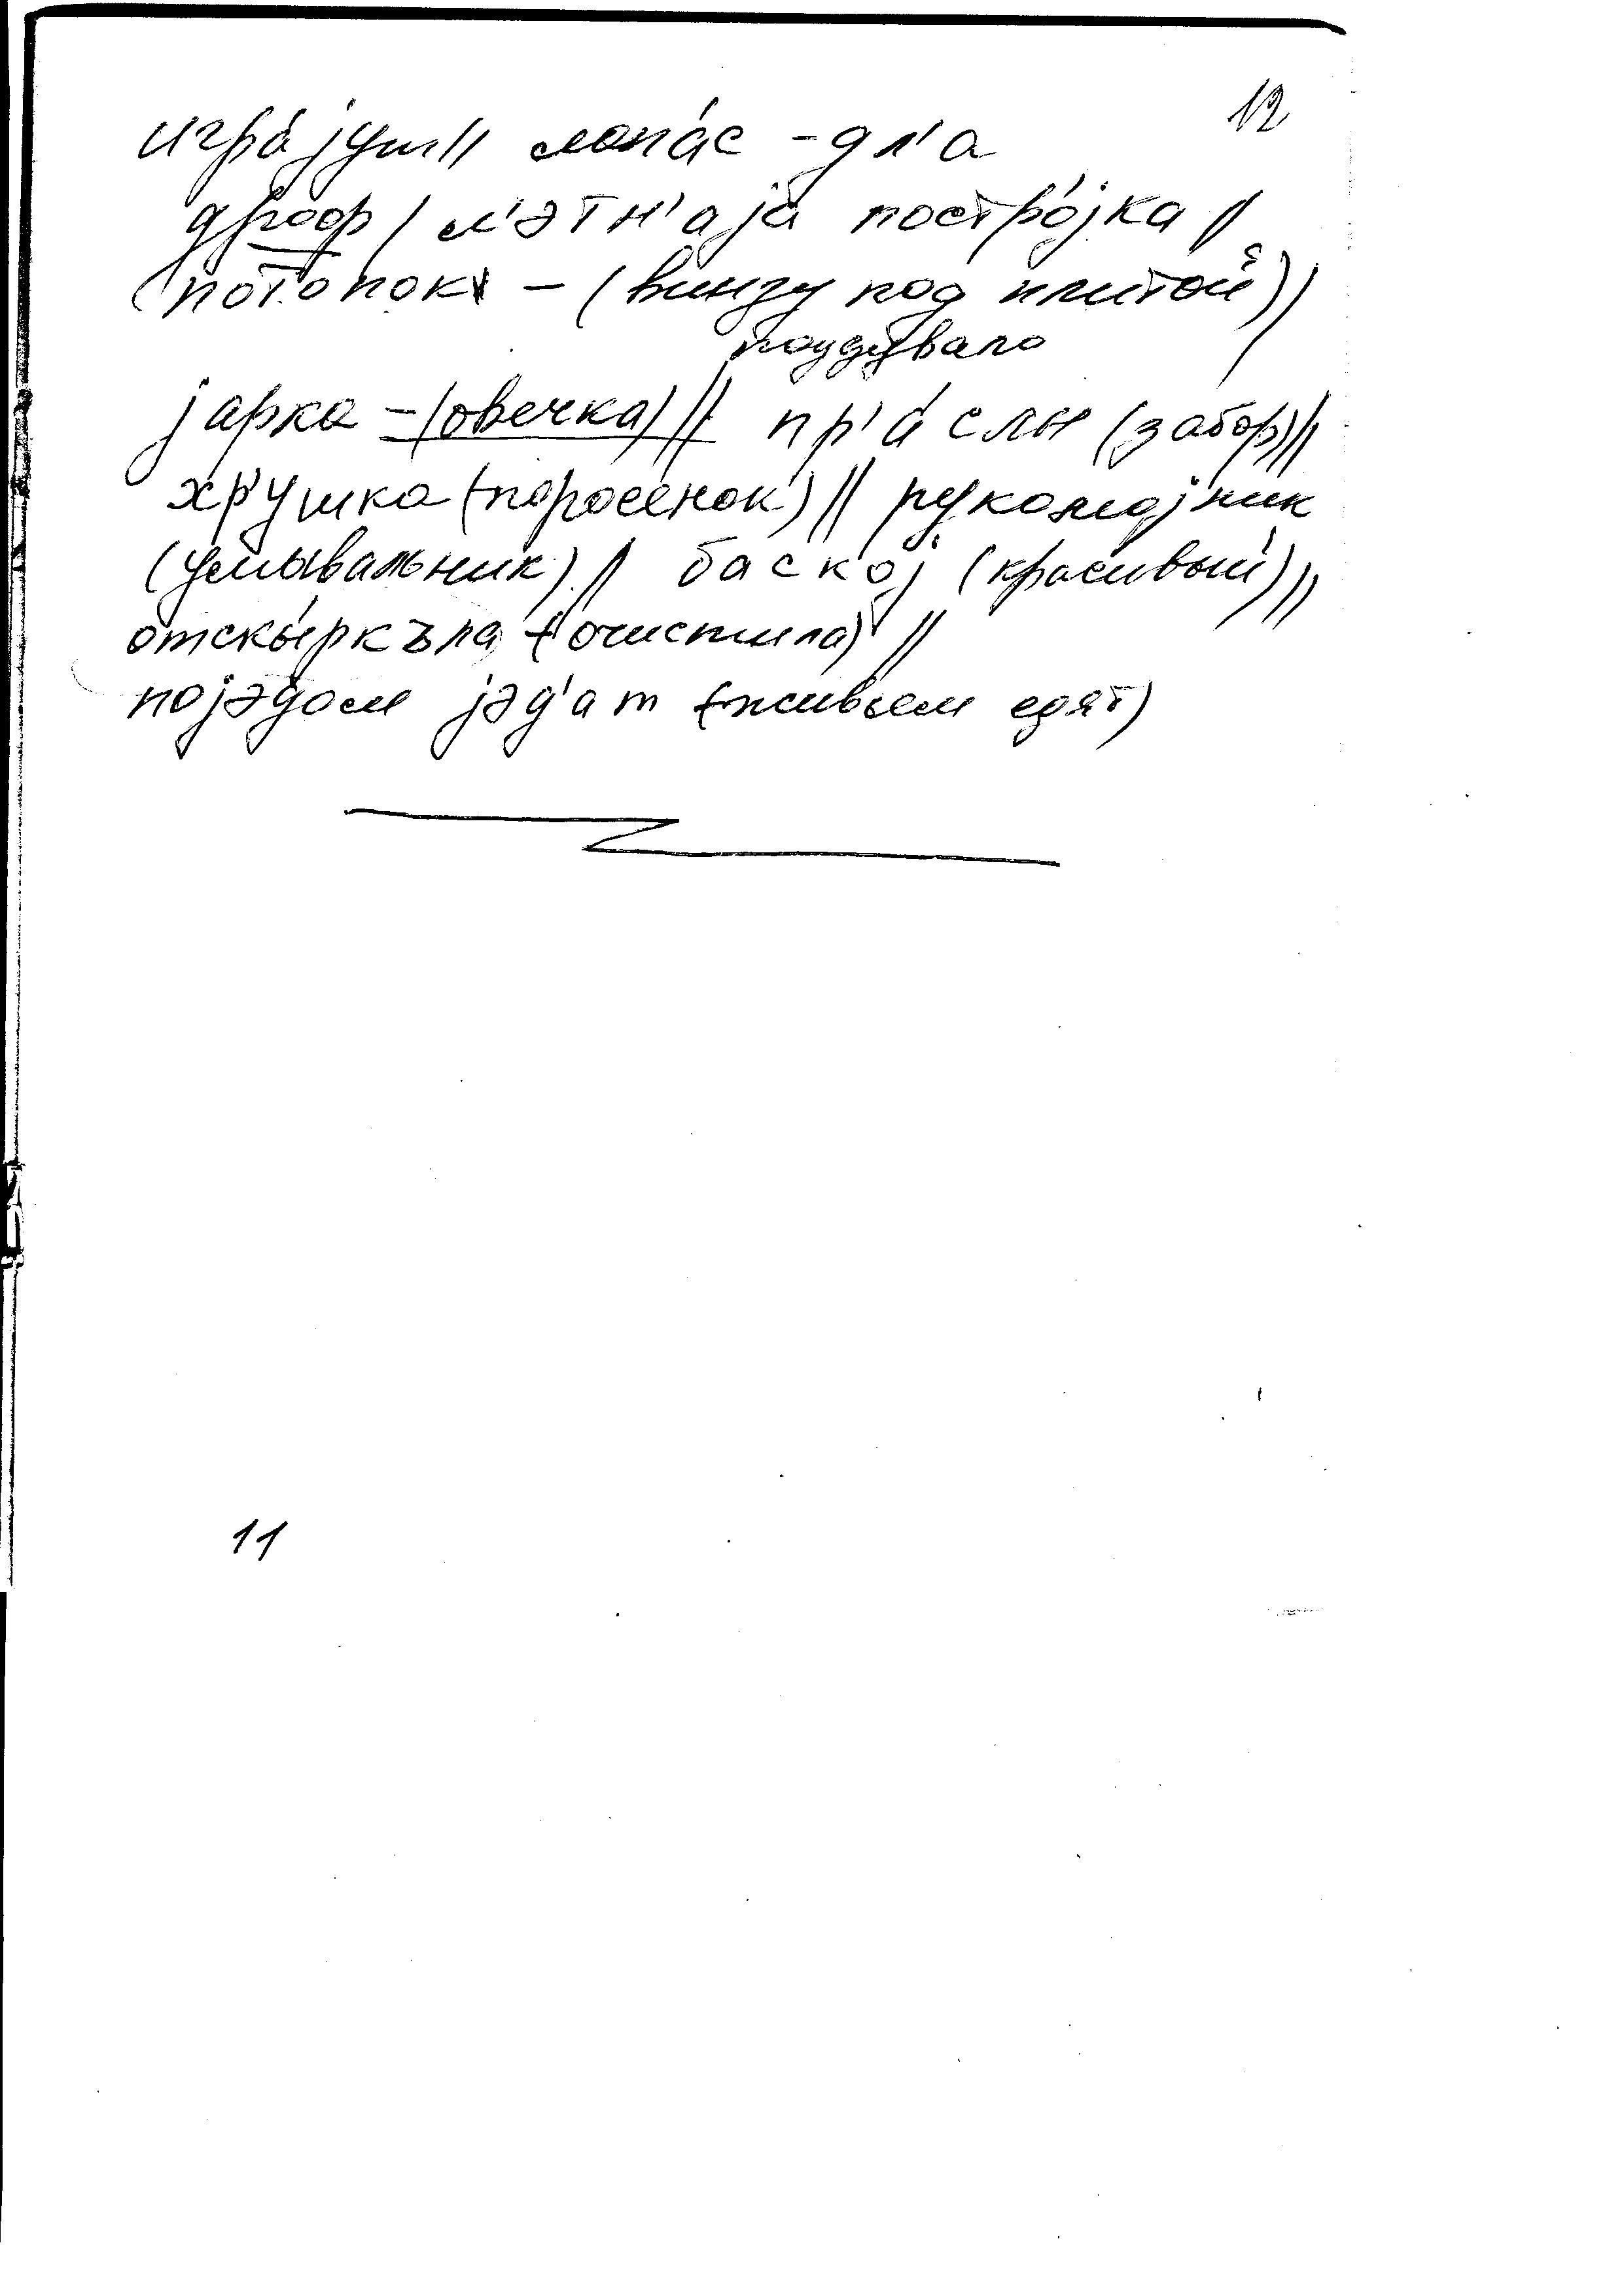 12
игра́јут// лопа́с – дл'а
дроф/ л'этн'аја постро́јка //
(потопок – (внизу под плитой))
поддувало
јарка – (овечка) // пр'а́слы (забор)//
хр'ушка (поросёнок) // рукомојник
(умывальник) // баско́ј (красивый)//
отскы́ркъла (очистила) //
појэдом јэд'ат (живьем едят)
11